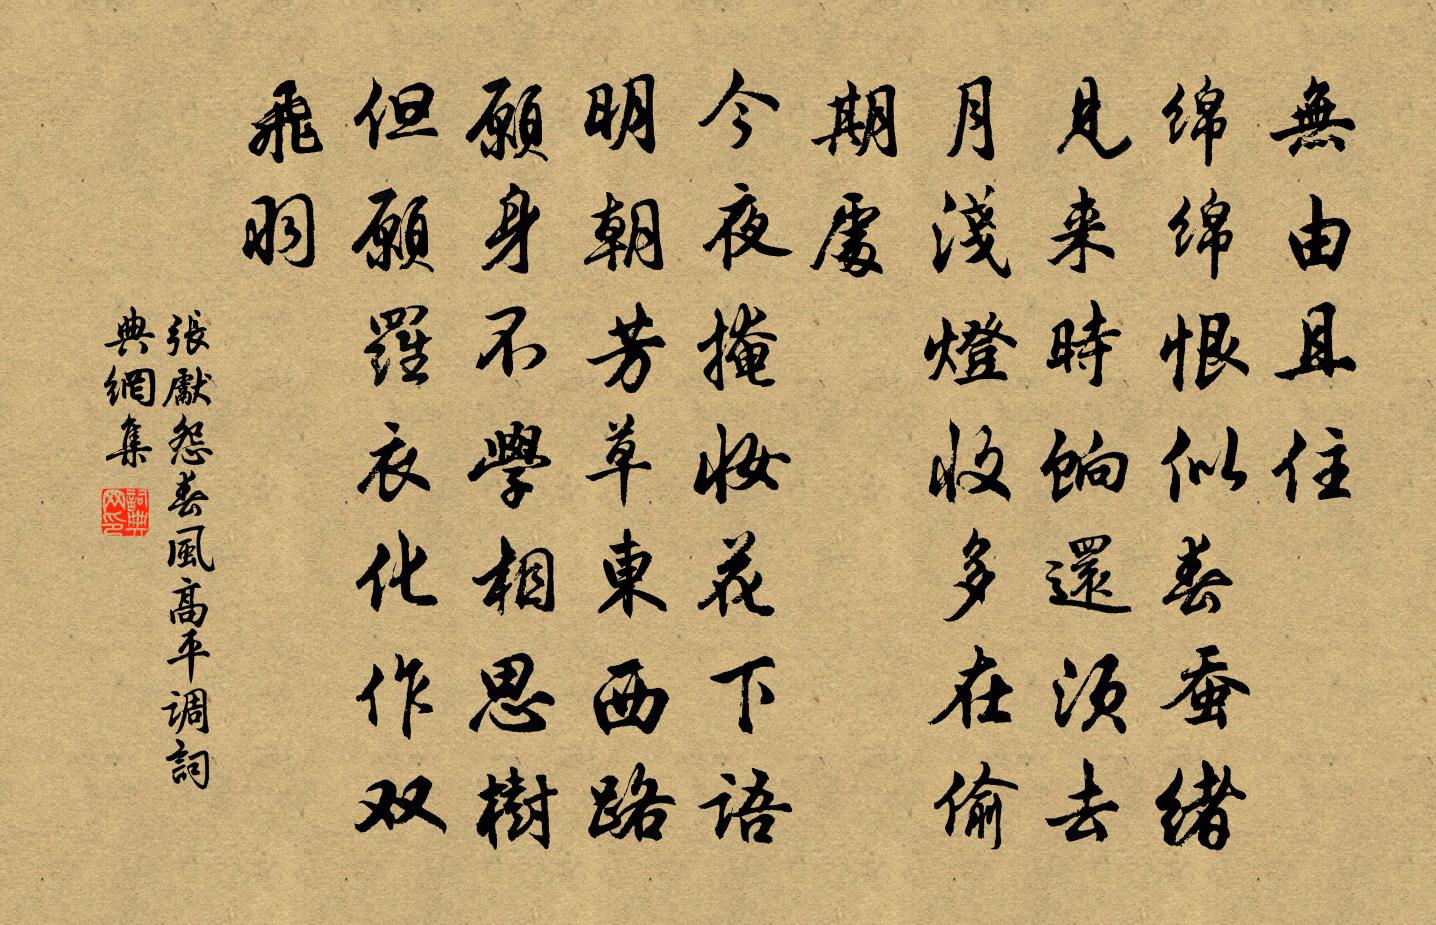 無由且住
綿綿恨似春蚕緒
見来時餉還須去
月淺燈收多在偷
期處
今夜掩妝花下語
明朝芳草東西路
願身不學相思樹
但願羅衣化作双
飛羽
張獻怨春風高平调詞
典網集
詞典网印